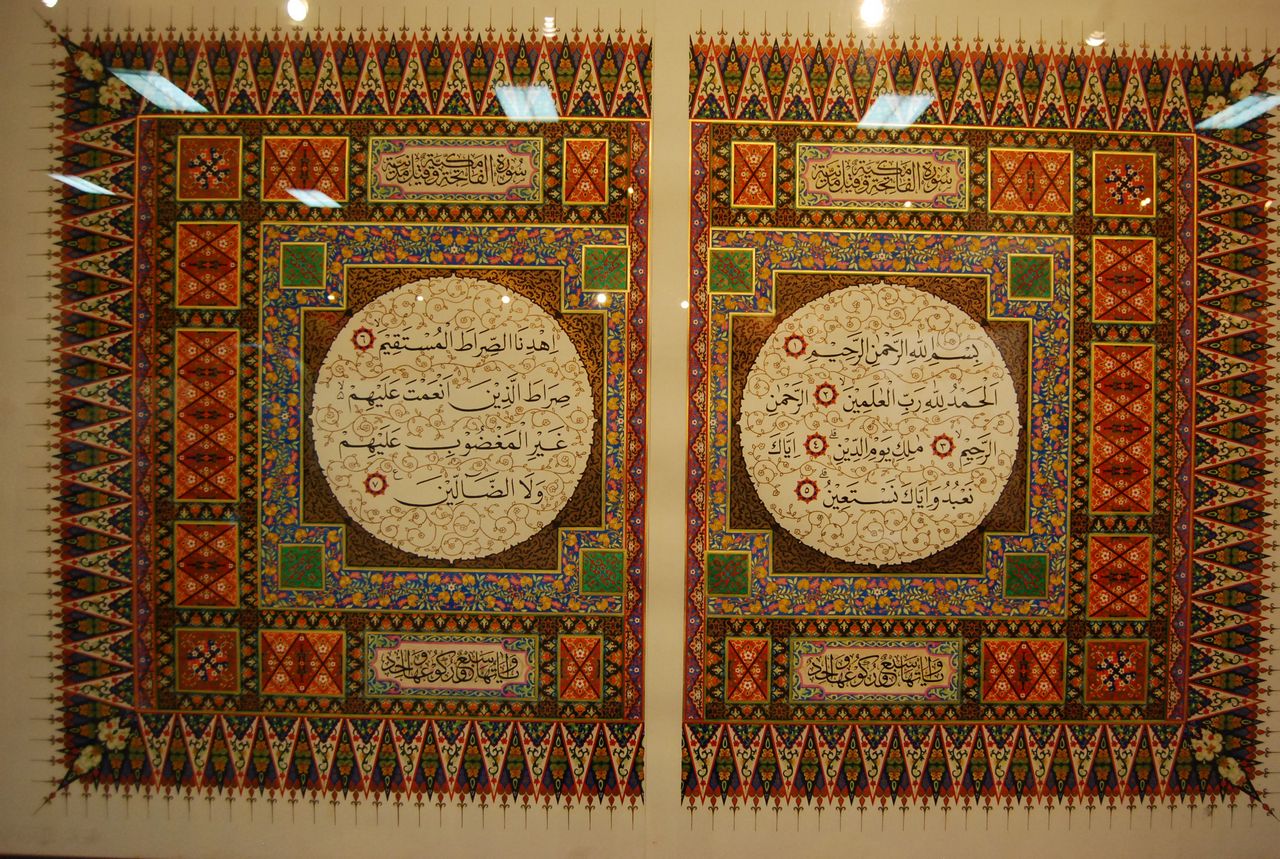 سورة الفاتحة مكية وقيل مدنية
بِسْمِ اللهِ الرَّحْمٰنِ الرَّحِيْمِ ۝١
اَلْحَمْدُ لِلّٰهِ رَبِّ الْعٰلَمِيْنَ ۝٢ الرَّحْمٰنِ
الرَّحِيْمِ ۝٣ مٰلِكِ يَوْمِ الدِّيْنِ ۝٤ اِيَّاكَ
نَعْبُدُ وَاِيَّاكَ نَسْتَعِيْنُ ۝٥
وآياتها سبع وركوعها واحد
سورة الفاتحة مكية وقيل مدنية
اِهْدِنَا الصِّرَاطَ الْمُسْتَقِيْمَ ۝٦
صِرَاطَ الَّذِيْنَ اَنْعَمْتَ عَلَيْهِمْ
غَيْرِ الْمَغْضُوْبِ عَلَيْهِمْ
وَلَا الضَّآلِّيْنَ ۝٧
وآياتها سبع وركوعها واحد